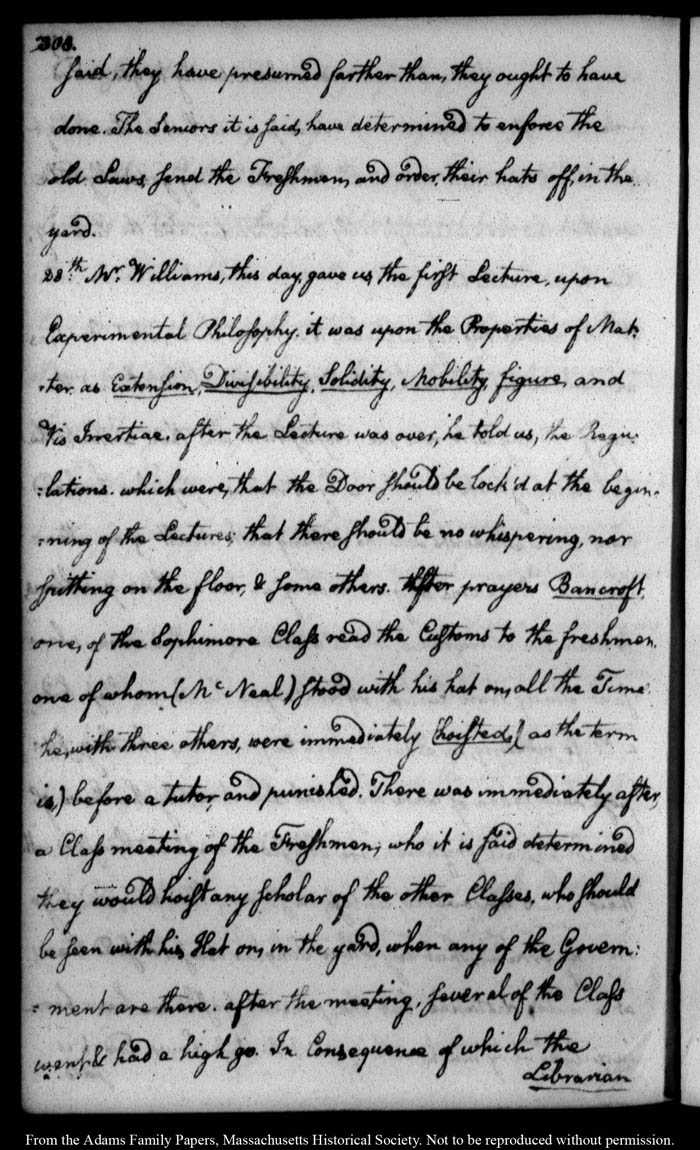 208.
said, they have presumed farther than, they ought to have
done. The Seniors it is said, have determined to enforce the
old Laws, send the Freshmen, and order, their hats off, in the
yard.
28th. Mr. Williams, this day, gave us, the first Lecture, upon
Experimental Philosophy. it was upon the Properties of Mat:
:ter as Extension, Divisibility, Solidity, Mobility, figure, and
Vis Inertiae. after the Lecture was over, he told us, the Regu:
:lations. which were, that the Door should be lock'd at the begin:
:ning of the Lectures; that there should be no whispering, nor
spitting on the floor, & some others. After prayers Bancroft,
one, of the Sophimore Class read the Customs to the freshmen.
one of whom (McNeal) stood with his hat on, all the Time.
he, with three others, were immediately hoisted, (as the term
is,) before a tutor, and punished. There was immediately after,
a Class meeting of the Freshmen; who it is said determined
they would hoist any scholar of the other Classes, who should
be seen with his Hat on, in the yard, when any of the Govern:
:ment are there. after the meeting, several of the Class
went & had a high go. In Consequence of which the
Librarian
From the Adams Family Papers, Massachusetts Historical Society. Not to be reproduced without permission.